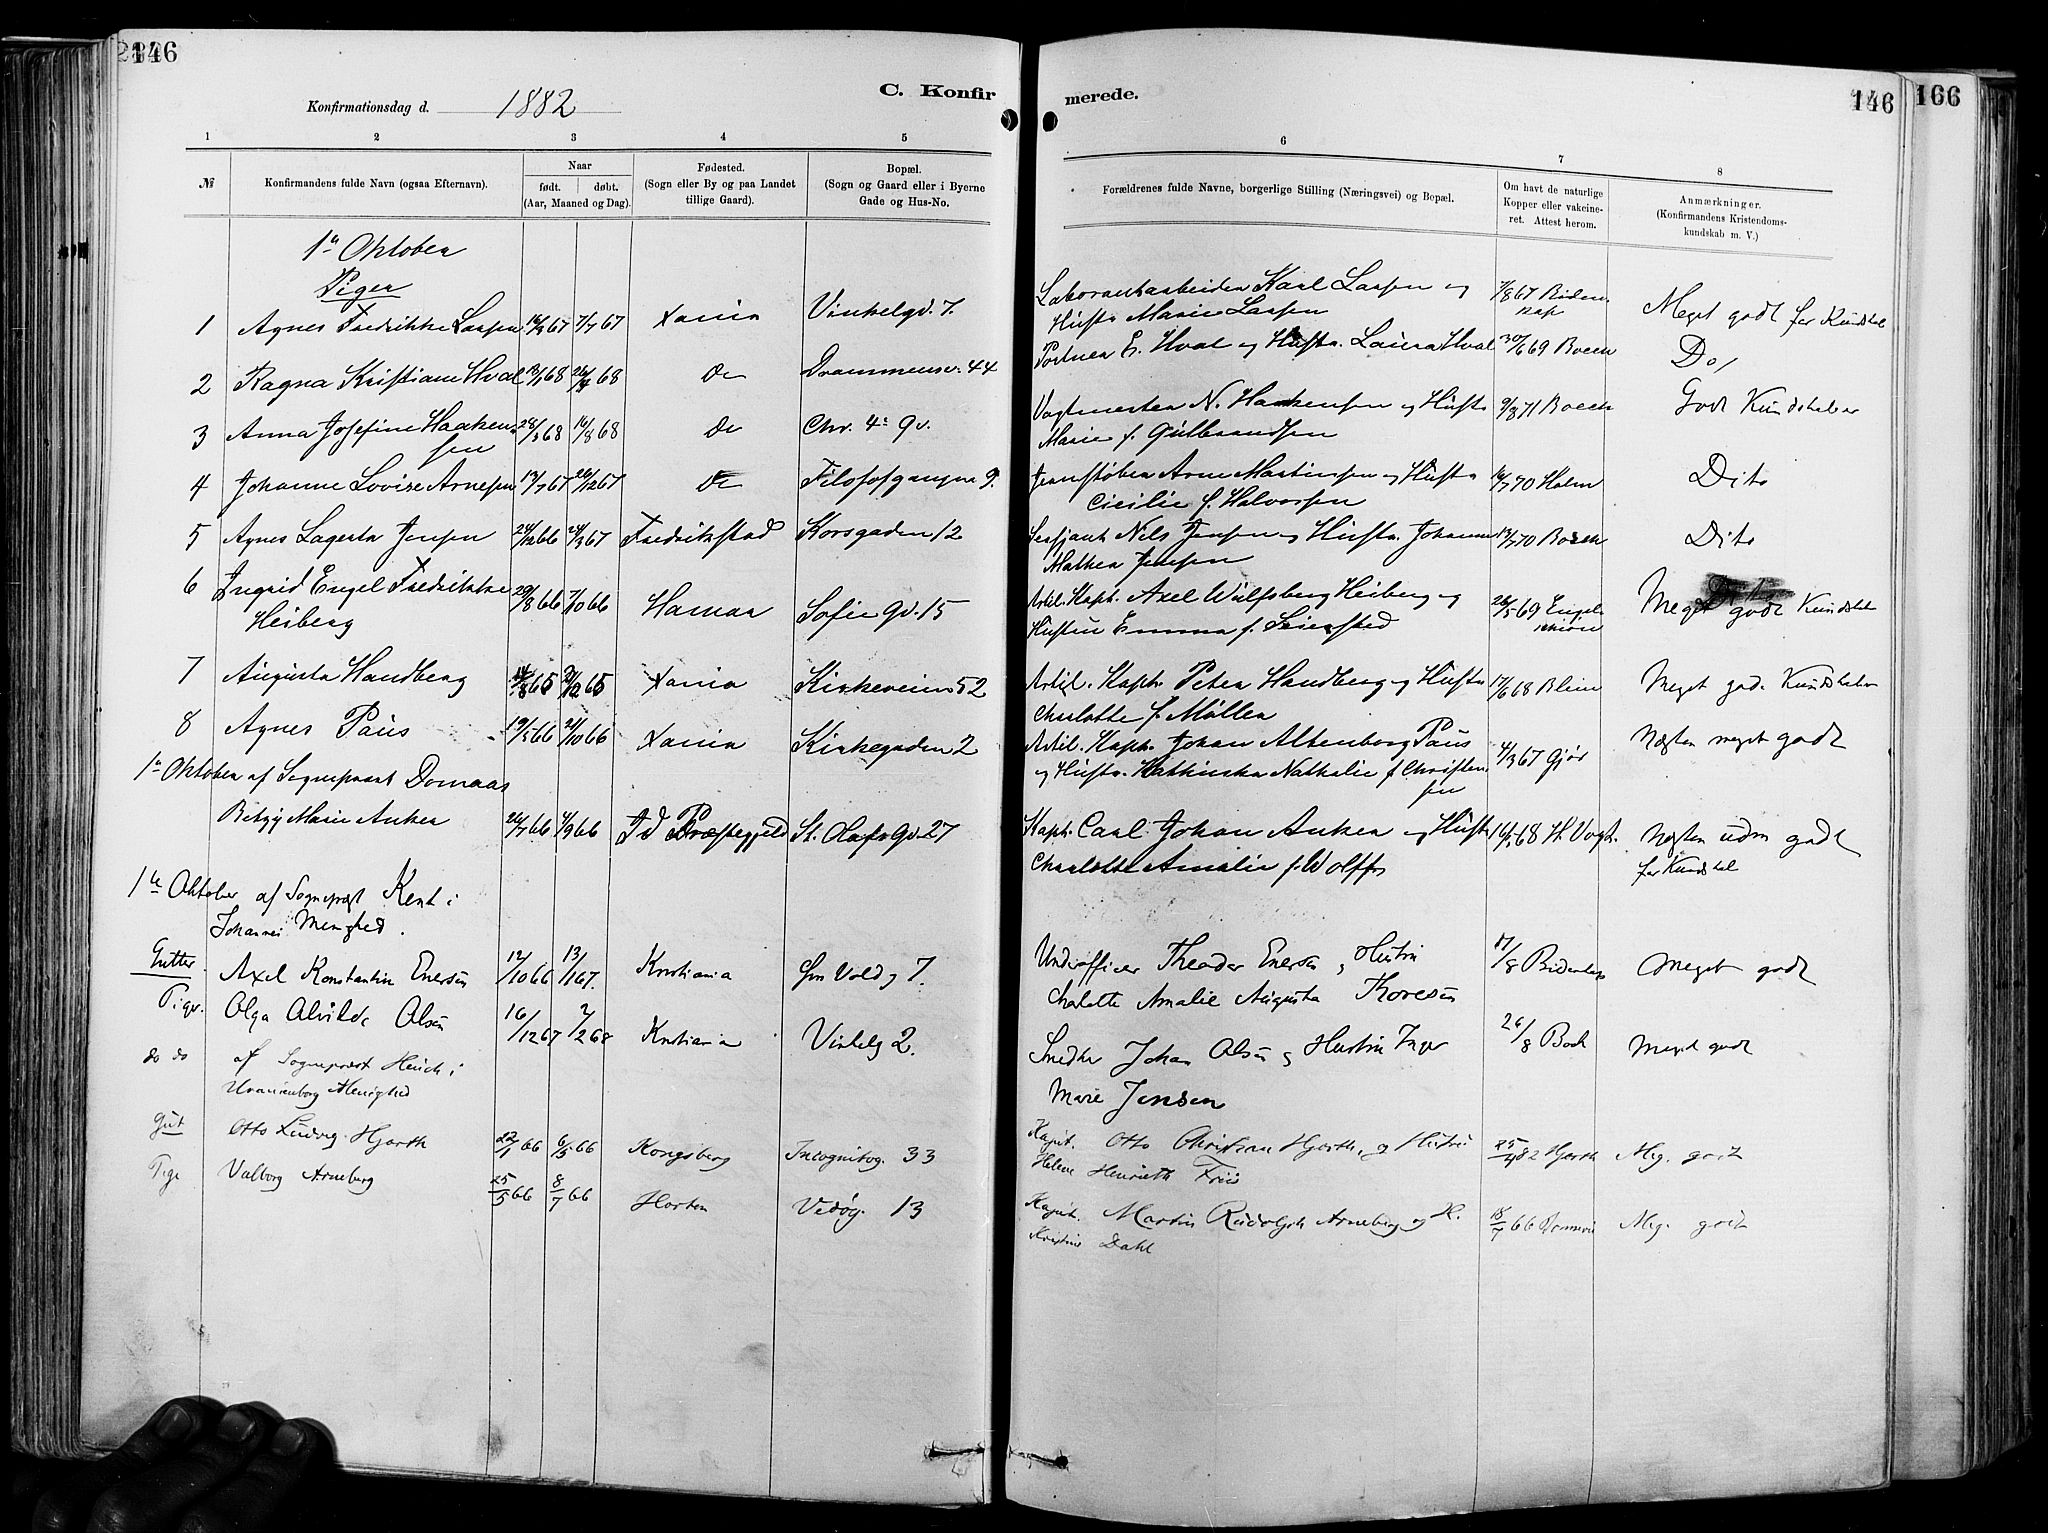 146
Konfirmationsdag d. 1882
C. Konfir
merede.
146
166
1 2 3 4 5
6 7 8
№
Konfirmandens fulde Navn (ogsaa Efternavn).
Naar
født. døbt.
(Aar, Maaned og Dag).
Fødested.
(Sogn eller By og paa Landet
tillige Gaard).
Bopæl.
(Sogn og Gaard eller i Byerne
Gade og Hus-No.
Forældrenes fulde Navne, borgerlige Stilling (Næringsvei) og Bopæl.
Om havt de naturlige
Kopper eller vakcine-
ret. Attest herom.
Anmærkninger.
(Konfirmandens Kristendoms-
kundskab m. V.)
1ste Oktober
Piger
1 Agnes Fredrikke Larsen 7/7 67 Xania Vinkelgd. 7. Karl Larsen og
Hustr Marie Larsen 7/8 67 Meget godt for Kundskab
2 Ragna Kristiane Hval 68 68 Do Drammensv. 44 Portner E. Hval og Hustr. Laura Hval 30/6 69 Boeck Do
3 Anna Josefine Haaken
sen 68 16/8 68 Do Chr. 4s Gd. Vagtmester N. Haakensen og Hustr
Marie f. Gulbrandsen 9/8 71 Boeck Godt Kundskaber
4 Johanne Lovise Arnesen 67 26/12 67 Do Filosofgangen 9. Jernstøber Arne Martinsen og Hustr
Cicilie f. Halvorsen 70 Holm Dito
5 Agnes Lagerta Jensen 24/12 66 24/3 67 Fredrikstad Korsgaden 12 Sersjant Nils Jensen og Hustr. Johanne
Mathea Jensen 70 Boeck Dito
6 Ingrid Engel Fredrikke
Heiberg 29/8 66 7/10 66 Hamar Sofie Gd. 15 Artil. Kapt. Axel Wulfsberg Heiberg og
Hustru Emma f. Seiersted 26/5 69 Engel
schiøn Meget godt Kundskab
7 Augusta Handberg 65 65 Xania Kirkeveien 52 Artil. Kapt. Peter Handberg og Hustr
Charlotte f. Møller 17/6 68 Meget god. Kundskaber
8 Agnes Paus 19/5 66 21/10 66 Xania Kirkegaden 2 Artil. Kapt. Johan Altenborg Paus
og Hustr. Kathinka Nathalie f. Christen
sen 4/3 67 Gjør Næsten meget godt
1ste Oktober af Sogneprest Domaas
Betzy Marie Anker 66 4/9 66 Id Præstegjeld St. Olafs Gd. 27 Kapt. Carl Johan Anker og Hustr
Charlotte Amalie f. Wolff 68 H. Vogt. Næsten udm godt
for Kundskab
1ste Oktober af Sognepræst Kent i
Johannes Menighed.
Gutter. Axel Konstantin Enersen 12/10 66 13/1 67. Kristiania Grn Vold g 7. Underofficer Theodor Enersen og Hustru
Charlotte Amalie Augusta Thoresen 17/8 Meget godt
Piger. Olga Alvilde Olsen 16/12 67 2/2 68 Kristiania Vinkelg 2. Snedker Johan Olsen og Hustru Inger
Marie Jensen 26/8 Bock Meget godt
do do af Sognepræst Heuch i
Uranienborg Menighed
Gut Otto Ludvig Hjorth 22/1 66 6/5 66 Kongsberg Incognitog. 33 Kapt. Otto Christian Hjorth og Hustru
Helene Henriette Friis 25/4 82 Hjorth Meg. godt
Pige Valborg Arneberg 25/5 66 8/7 66 Horten Vedøg. 13 Kapt. Martin Rudolph Arneberg og H.
Kristine Dahl 18/7 66 Meg. godt